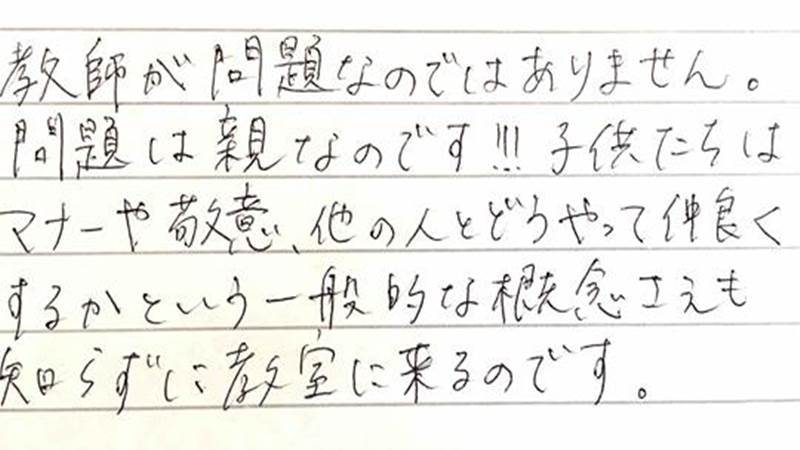 教師が問題なのではありません。
問題は親なのです!!! 子供たちは
マナーや敬意、他の人とどうやって仲良く
するかという一般的な概念さえも
知らずに教室に来るのです。